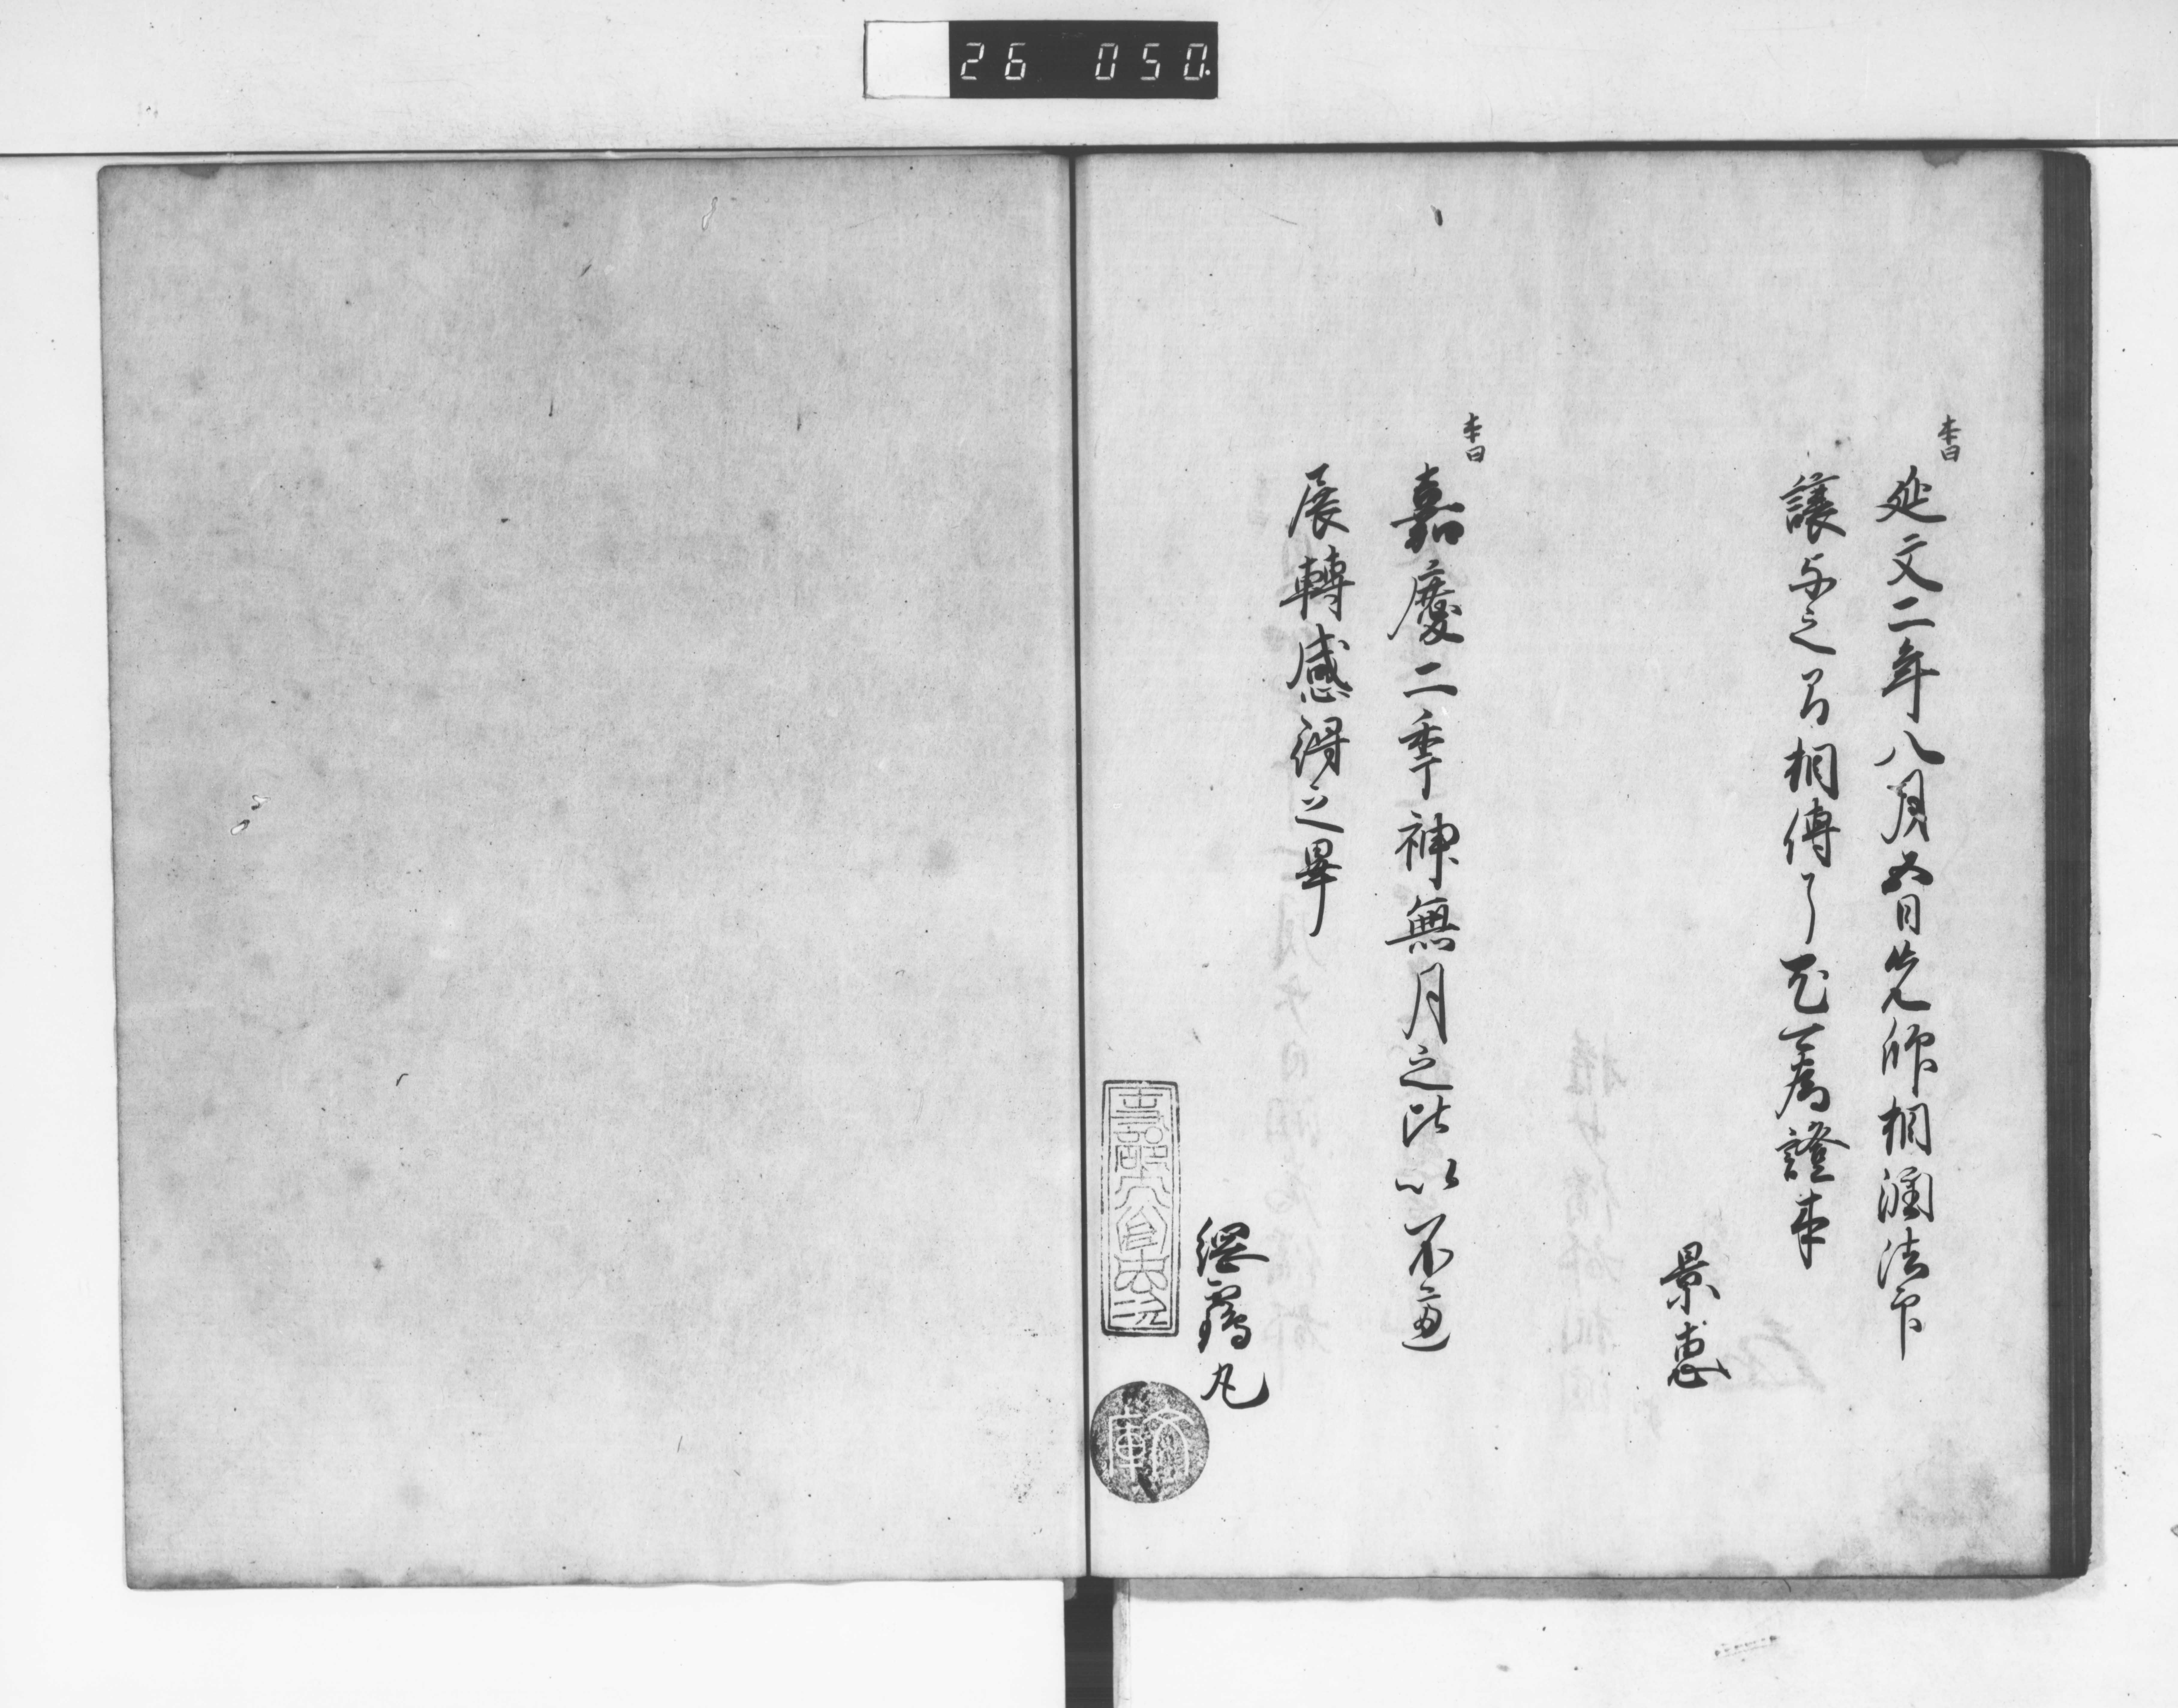 26 050.
本曰
延文二年八月五日先師相法印
讓与之間相傳了尤可為證本
景恵
本曰
嘉慶二季神無月之比以不慮
展轉感得之畢
鶴丸
文庫